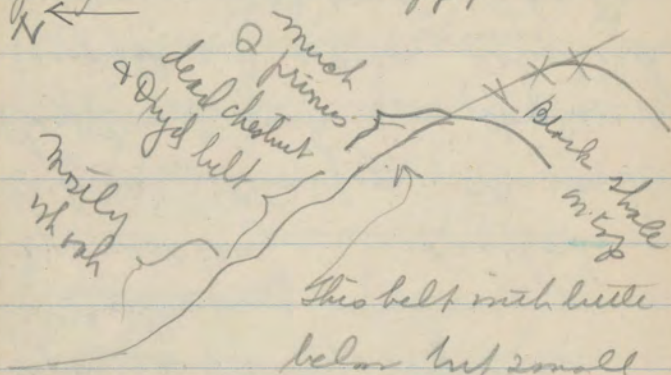 N
much
Q prinus
dead chestnut
& Oryd belt
Mostly
Wh oak
Black shale
on top
This belt with little
below but small